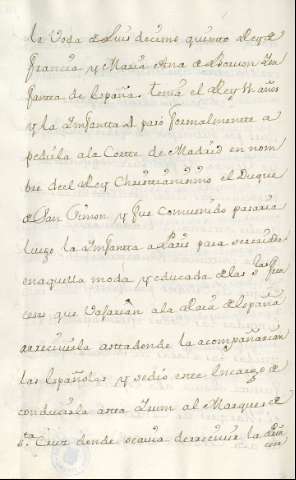 la Voda de Luis decimo quinto Rey de
Francia y Maria Ana de Borvon Yn
fantea de España. tenia el Rey 11 años
y la Ynfantta 4 pasó formalmentte a
pedirla ala Cortte de Madrid en nom
bre del Rey Christtianisimo el Duque
de San Simon y fue combenido pasaria
luego la Ynfantta a Paris para ser criada
en aquella moda y educada de las Sras fran
cesas que vajarian ala Raia de España
a rrecivirla astta donde la acompañarian
las Españolas y se dio este Encargo de
conducirla a esta Junta al Marques de
Sta Cruz donde ocavia de rrecivir la Prin
cesa